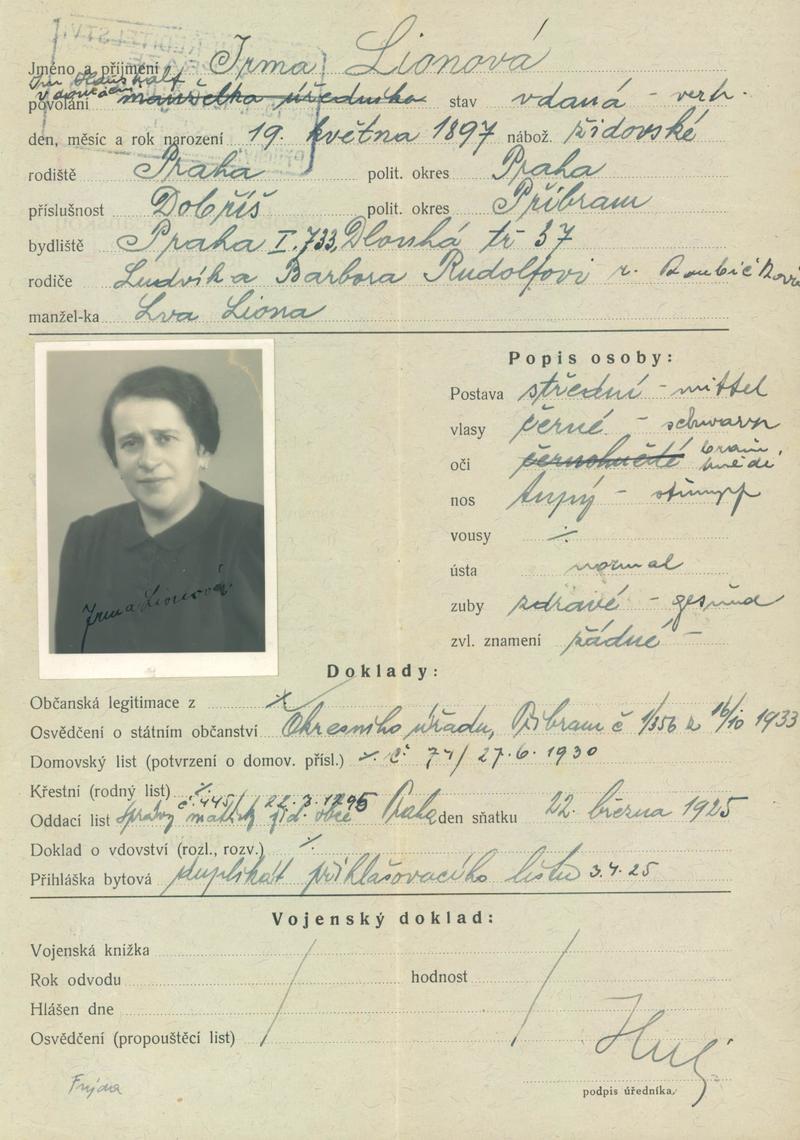 Jméno a příjmení Irma Lionová
Im Haushalt
v domácn.
povolání manželka úředníka stav vdaná - verh.
den, měsíc a rok narození 19. května 1897 nábož. židovské
rodiště Praha polit. okres Praha
příslušnost Dobříš polit. okres Příbram
bydliště Praha I. 733, Dlouhá tř 37
rodiče Ludvík a Barbora Rudolfovi r.
manžel-ka Lva Liona
Irma Lionová
Popis osoby:
Postava střední - mittel
vlasy černé - schwarz
oči braun, hnědé
nos tupý - stumpf
vousy ∕.
ústa normal
zuby zdravé - gesund
zvl. znamení žádné -
Doklady:
Občanská legitimace z
Osvědčení o státním občanství Okresního úřadu, Příbram č 1/356 z 16/10 1933
Domovský list (potvrzení o domov. přísl.) č. 74/27.6.1930
Křestní (rodný list)
č. 445/22.3.
Oddací list Správy matrik žid. obce Praha den sňatku 22. března 1925
Doklad o vdovství (rozl., rozv.)
Přihláška bytová duplikát přihlašovacího lístu 3.4.25
Vojenský doklad:
Vojenská knížka
Rok odvodu hodnost
Hlášen dne
Osvědčení (propouštěcí list)
podpis úředníka